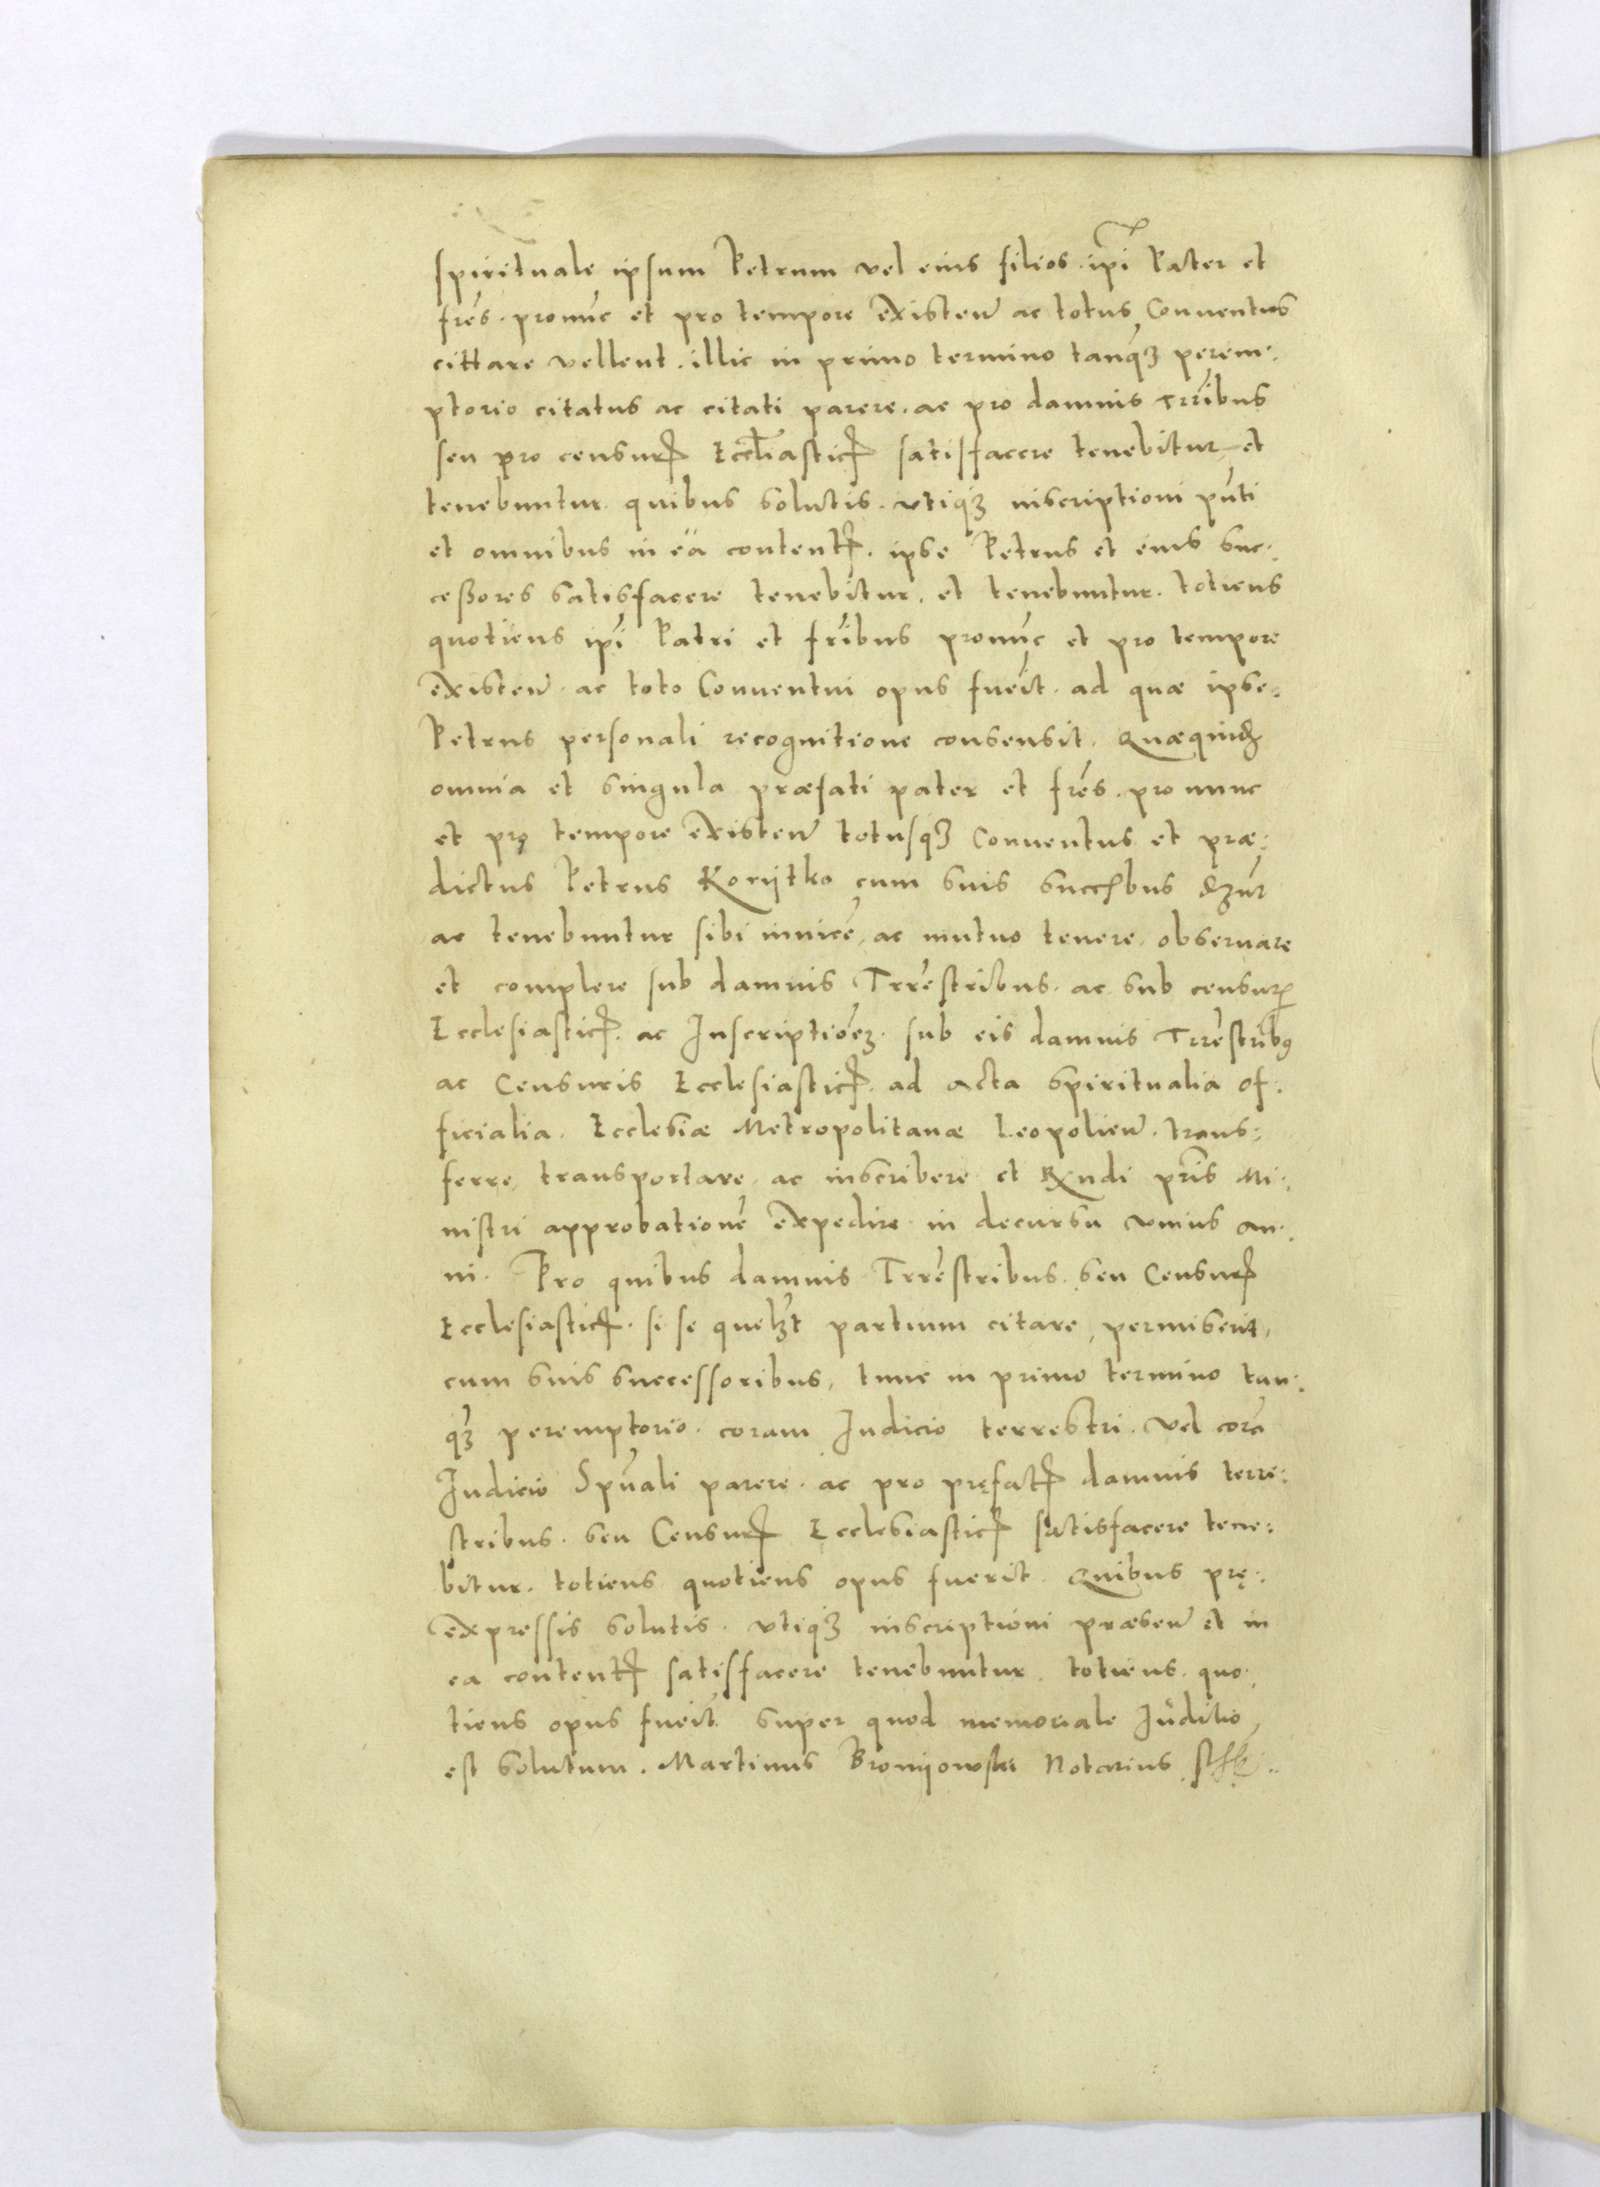 spirituale ipsum Petrum vel eius filios ipi Pater et
fres. pronuc et pro tempore existen ac totus Conventus
cittare vellent. illic in primo termino tanqȝ perem:
ptorio citatus ac citati parere. ac pro damnis Trribus
seu pro censurꝭ Eccliasticꝭ satisfacere tenebitur et
tenebuntur. quibus solutis. vtiqȝ inscriptioni pnti
et omnibus in ea contentꝭ. ipse Petrus et eius suc:
cessores satisfacere tenebitur. et tenebuntur. totiens
quotiens ipi Patri et fribus pronuc et pro tempore
existen. ac toto Conventui opus fueit. ad quæ ipse
Petrus personali recognitione consensit. Quæquidȝ
omnia et singula præfati pater et fres. pro nunc
et pro tempore existen totusqȝ Conventus et præ:
dictus Petrus Korijtko cum suis
ac tenebuntur sibi invice, ac mutuo tenere. observare
et complere sub damnis Trrestribus. ac sub censurꝭ
Ecclesiasticꝭ. ac Inscriptioeȝ. sub eis damnis Trrestribꝰ
ac Censuris Ecclesiasticꝭ. ad acta spiritualia of:
ficialia. Ecclesiæ Metropolitanæ Leopolien. trans:
ferre, transportare, ac inscribere et Rndi pris Mi:
nistri approbatione expedire. in decursu vnius an:
ni. Pro quibus damnis Trrestribus. seu Censurꝭ
Ecclesiasticꝭ. si se quelȝt partium citare, permiserit,
cum suis successoribus, tunc in primo termino tan:
qȝ peremptorio. coram Iudicio terrestri. vel cora
Iudicio Spuali parere. ac pro pręfatꝭ damnis terre:
stribus. seu Censurꝭ Ecclesiasticꝭ satisfacere tene:
bitur. totiens quotiens opus fuerit. Quibus prę:
expressis solutis. vtiqȝ inscriptioni præsen et in
ea contentꝭ satisfacere tenebuntur. totiens. quo:
tiens opus fueit. super quod memoriale Iuditio
est solutum. Martinus Bronijowski Notarius